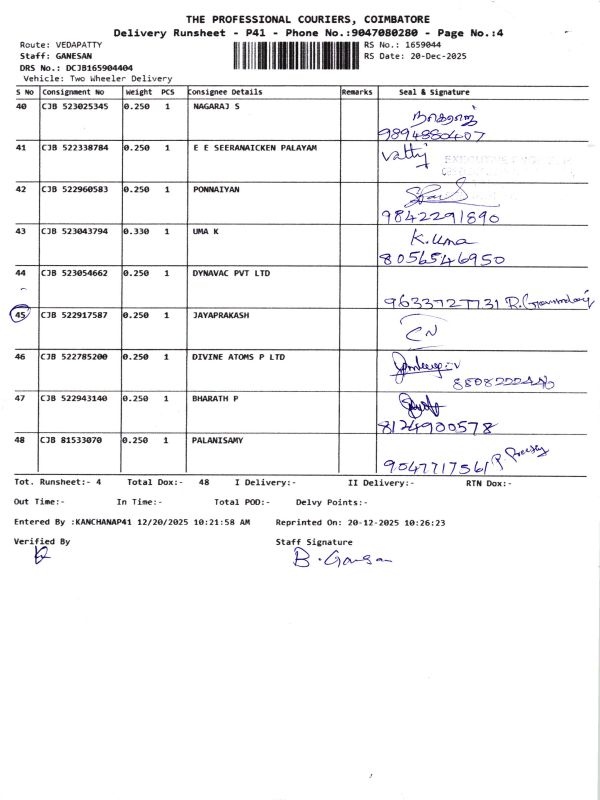 THE PROFESSIONAL COURIERS, COIMBATORE
Delivery Runsheet - P41 - Phone No.:9047080280 - Page No.:4
Route: VEDAPATTY RS No.: 1659044
Staff: GANESAN RS Date: 20-Dec-2025
DRS No.: DCJB165904404
Vehicle: Two Wheeler Delivery
S No Consignment No Weight PCS Consignee Details Remarks Seal & Signature
40 CJB 523025345 0.250 1 NAGARAJ S நாகராஜ்
9894880407
41 CJB 522338784 0.250 1 E E SEERANAICKEN PALAYAM Vattj
42 CJB 522960583 0.250 1 PONNAIYAN
9842291890
43 CJB 523043794 0.330 1 UMA K K.Uma
8056546950
44 CJB 523054662 0.250 1 DYNAVAC PVT LTD
9633727731
45 CJB 522917587 0.250 1 JAYAPRAKASH CN
46 CJB 522785200 0.250 1 DIVINE ATOMS P LTD
8808222446
47 CJB 522943140 0.250 1 BHARATH P
8124900578
48 CJB 81533070 0.250 1 PALANISAMY
9047717561
Tot. Runsheet:- 4 Total Dox:- 48 I Delivery:- II Delivery:- RTN Dox:-
Out Time:- In Time:- Total POD:- Delvy Points:-
Entered By :KANCHANAP41 12/20/2025 10:21:58 AM Reprinted On: 20-12-2025 10:26:23
Verified By Staff Signature
B. Ganesan